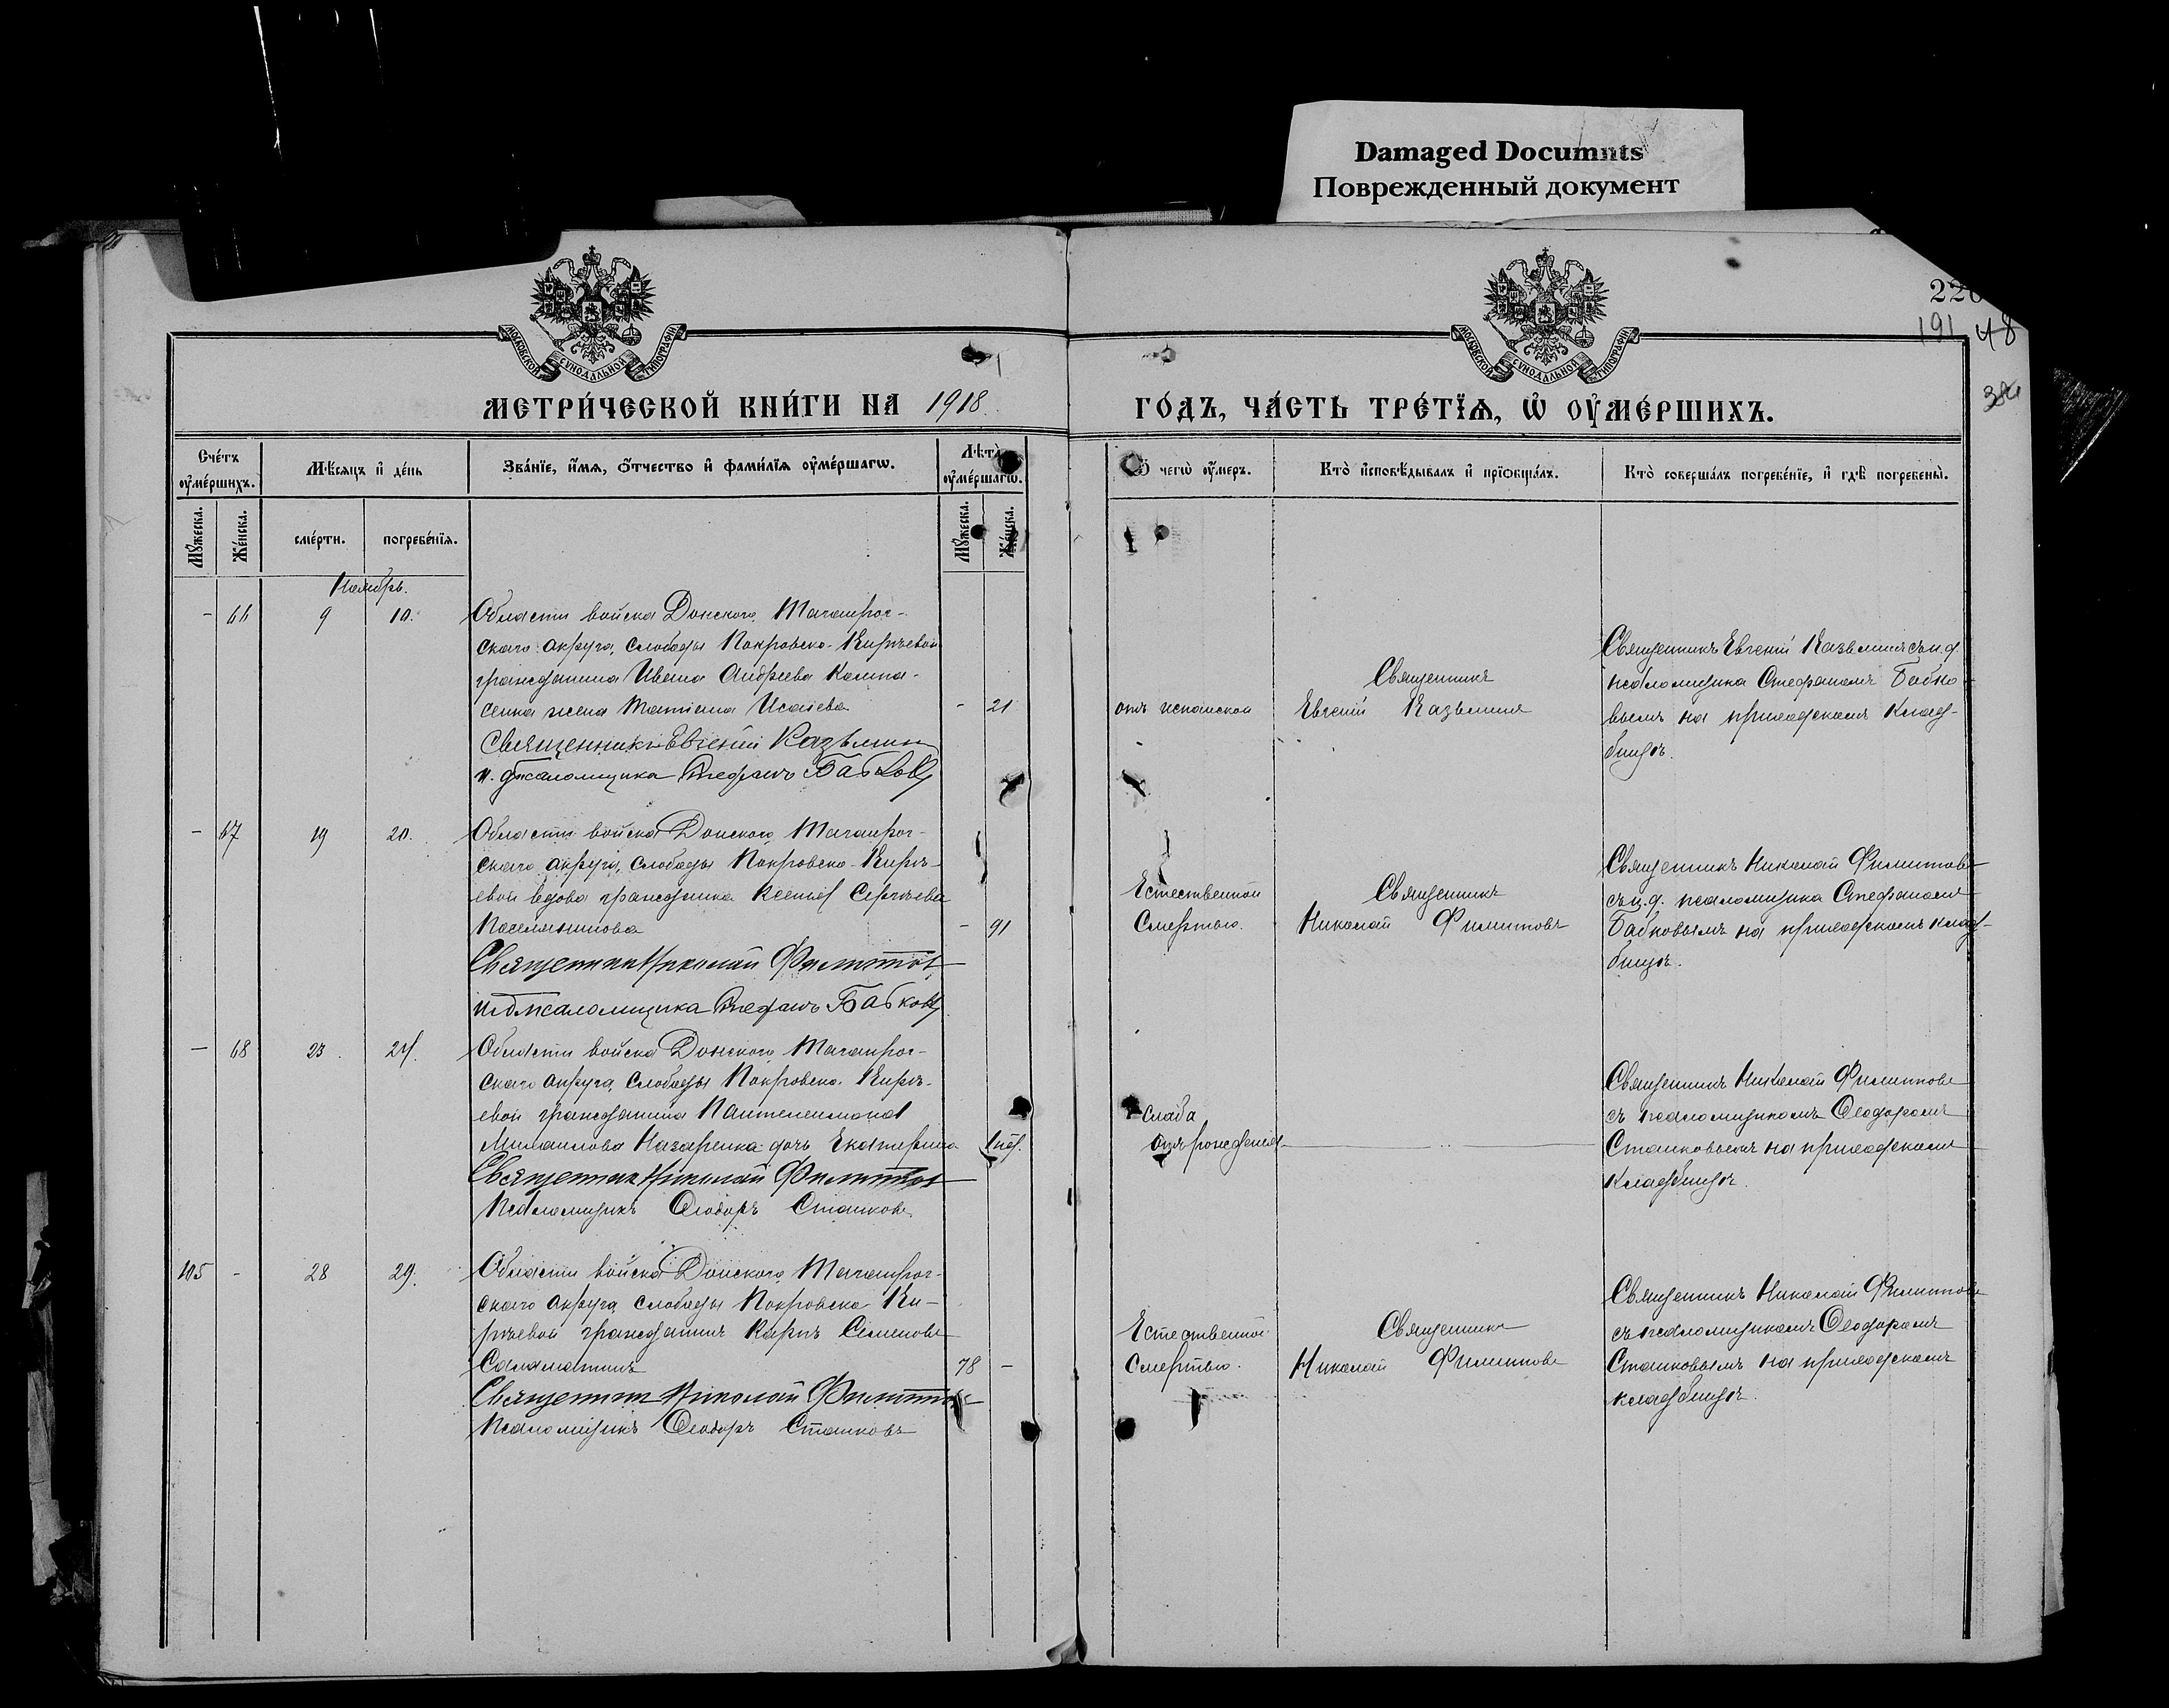 Damaged Documnts
Поврежденный документ
МОСКОВСКОЙ СУНОДАЛЬНОЙ ТИПОГРАФІИ
МОСКОВСКОЙ СУНОДАЛЬНОЙ ТИПОГРАФІИ
191 48
МЕТРИ́ЧЕСКОЙ КНИ́ГИ НА 1918
ГО́ДЪ, ЧА́СТЬ ТРЕ́ТЇѦ, Ѡ҆ ОУ҆МЕ́РШИХЪ.
Сче́тъ оу҆ме́ршихъ.
Мѣ́сѧцъ и҆ де́нь
Зва́нїе, и҆́мѧ, ѻ҆́тчество и҆ фами́лїѧ оу҆ме́ршагѡ.
Лѣ́та оу҆ме́ршагѡ.
чегѡ̀ оу҆́меръ.
Кто̀ и҆сповѣ́дывалъ и҆ прїѡбща́лъ.
Кто̀ соверша́лъ погребе́нїе, и҆ гдѣ̀ погребены̀.
Мꙋ́жеска.
Же́нска.
сме́рти.
погребе́нїѧ.
Мꙋ́жеска.
Же́нска.
Ноябрь.
- 66 9 10. Области войска Донского, Таганрог-
скаго округа, слободы Покровско-Кирѣевой
гражданина Ивана Андреева
жена Татіана Исаіева - 21
Священникъ Евгеній Казьминъ
и. д. псаломщика Стефанъ Бабковъ
отъ испанской
Священникъ
Евгеній Казьминъ
Священникъ Евгеній Казьминъ съ и.д.
псаломщика Стефаномъ Бабко-
вымъ на приходскомъ клад-
бищѣ.
- 67 19 20. Области войска Донского, Таганрог-
скаго округа, слободы Покровско-Кирѣ-
евой вдова гражданка Ксенія Сергѣева
Поселянинова - 91
Священникъ Николай Филипповъ
и д псаломщика Стефанъ Бабковъ
Естественной
Смертью.
Священникъ
Николай Филипповъ
Священникъ Николай Филипповъ
съ и.д. псаломщика Стефаномъ
Бабковымъ на приходскомъ клад-
бищѣ.
- 68 23 24. Области войска Донского, Таганрог-
скаго округа, слободы Покровско-Кирѣ-
евой гражданина Пантелеимона
Михаилова Назаренка дочь Екатерина
Священникъ Николай Филипповъ
Псаломщикъ Ѳеодоръ Сташковъ
слаба
отъ рожденія
Священникъ Николай Филипповъ
съ псаломщикомъ Ѳеодоромъ
Сташковымъ на приходскомъ
кладбищѣ.
105 - 28 29. Области войска Донского, Таганрог-
скаго округа слободы Покровско Ки-
рѣевой гражданинъ Карпъ Семеновъ
Саламатинъ 78 -
Священникъ Николай Филипповъ
Псаломщикъ Ѳеодоръ Сташковъ
Естественной
Смертью.
Священникъ
Николай Филипповъ
Священникъ Николай Филипповъ
съ псаломщикомъ Ѳеодоромъ
Сташковымъ на приходскомъ
кладбищѣ.